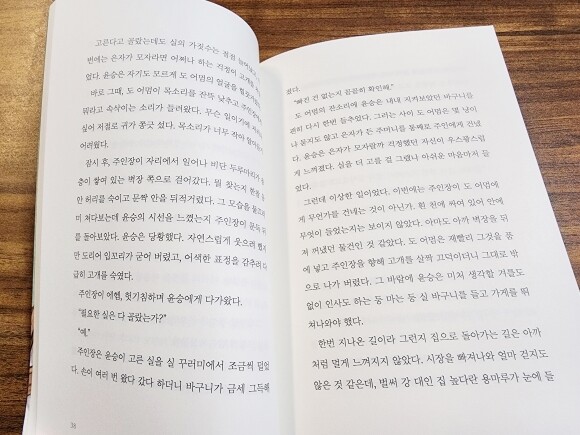 고른다고 골랐는데도 실의 가짓수는 점점
번에는 은자가 모자라면 어쩌나 하는 걱정이 고개를
었다. 윤승은 자기도 모르게 도 어멈의 얼굴을
바로 그때, 도 어멈이 목소리를 잔뜩 낮추고 주인장에게
뭐라고 속삭이는 소리가 들려왔다. 무슨 일이기에
싶어 저절로 귀가 쫑긋 섰다. 목소리가 너무 작아 알아듣기
어려웠다.
잠시 후, 주인장이 자리에서 일어나 비단 두루마리가
층이 쌓여 있는 벽장 쪽으로 걸어갔다. 뭘 찾는지 한참
안 허리를 숙이고 문짝 안을 뒤적거렸다. 그 모습을 물끄러
미 쳐다보는데 윤승의 시선을 느꼈는지 주인장이 문득 뒤
를 돌아보았다. 윤승은 당황했다. 자연스럽게 웃으려 했지
만 도리어 입꼬리가 굳어 버렸고, 어색한 표정을 감추려 다
급히 고개를 숙였다.
주인장이 에헴, 헛기침하며 윤승에게 다가왔다.
"필요한 실은 다 골랐는가?"
"예."
주인장은 윤승이 고른 실을 실 꾸러미에서 조금씩 덜었
다. 손이 여러 번 왔다 갔다 하더니 바구니가 금세 그득해
38
졌다.
"빠진 건 없는지 꼼꼼히 확인해."
도 어멈의 잔소리에 윤승은 내내 지켜보았던 바구니를
괜히 다시 한번 들추었다. 그러는 사이 도 어멈은 몇 냥이
냐 묻지도 않고 은자가 든 주머니를 통째로 주인에게 건넸
다. 윤승은 은자가 모자랄까 걱정했던 자신이 우스꽝스럽
게 느껴졌다. 실을 더 고를 걸 그랬나 아쉬운 마음마저 들
었다.
그런데 이상한 일이었다. 이번에는 주인장이 도 어멈에
게 무언가를 건네는 것이 아닌가. 흰 천에 싸여 있어 안에
무엇이 들었는지는 보이지 않았다. 아마도 아까 벽장을 뒤
져 꺼냈던 물건인 것 같았다. 도 어멈은 재빨리 그것을 품
에 넣고 주인장을 향해 고개를 살짝 끄덕이더니 그대로 밖
으로 나가 버렸다. 그 바람에 윤승은 미처 생각할 겨를도
없이 인사도 하는 둥 마는 둥 실 바구니를 들고 가게를 뛰
쳐나와야 했다.
한번 지나온 길이라 그런지 집으로 돌아가는 길은 아까
처럼 멀게 느껴지지 않았다. 시장을 빠져나와 얼마 걷지도
않은 것 같은데, 벌써 강 대인 집 높다란 용마루가 눈에 들